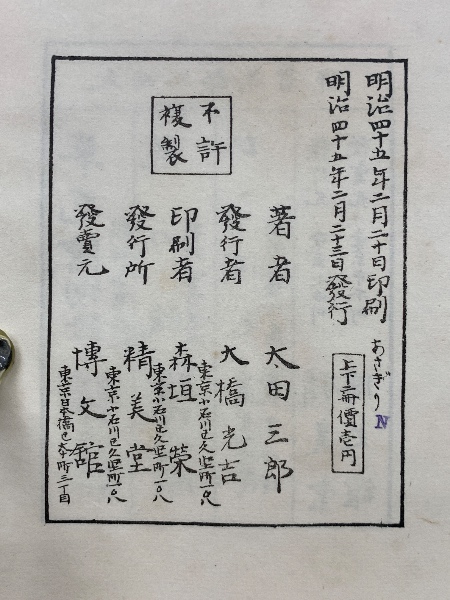 明治四十五年二月二十日印刷
明治四十五年二月二十三日發行
あさぎり
N
上下二冊價壱円
不許
複製
著者 太田三郎
發行者 大橋光吉
東京小石川区久堅町一〇八
印刷者 森垣榮
東京小石川区久堅町一〇八
發行所 精美堂
東京小石川区久堅町一〇八
發賣元 博文館
東京日本橋区本町三丁目